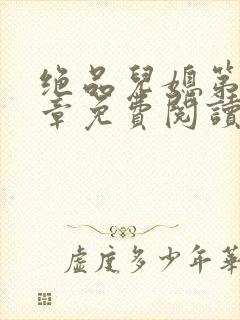 绝品兒媳第
章免費閱讀
虛度多少年華